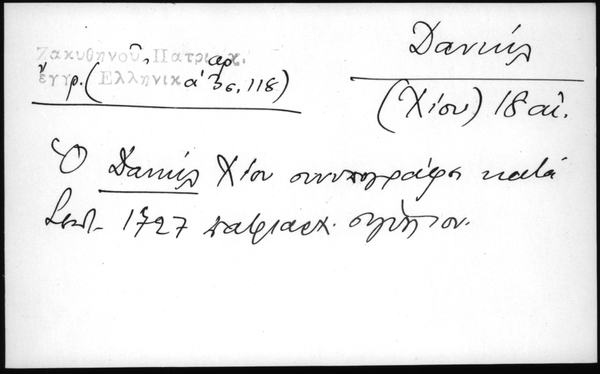 Ζακυθηνοῦ, Πατριαρχ.
ἔγγρ. (Ἑλληνικὰ 3 σ. 118)
Δανιὴλ
(Χίου) 18 αἰ.
Ὁ Δανιὴλ Χίου συνυπογράφει κατὰ
Σεπτ. 1727 πατριαρχ. σιγίλλιον.